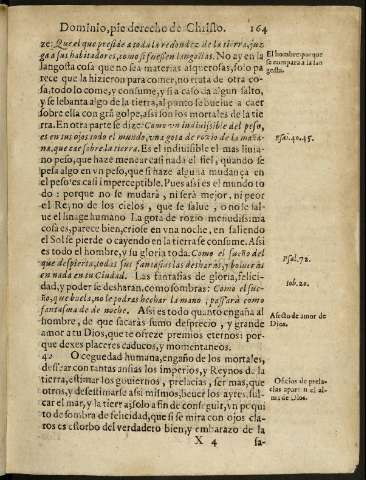 Dominio, pie derecho de Christo. 164
ze: Que el que preside a toda la redondez de la tierra, juz
ga a sus habitadores, como si fuessen langostas. No ay en la
langosta cosa que no sea materias asquerosas, solo pa
rece que la hizieron para comer, no trata de otra co-
sa, todo lo come, y consume, y si a caso da algun salto,
y se lebanta algo de la tierra, al punto se buelue a caer
sobre ella con grã golpe, assi son los mortales de la tie
rra. En otra parte se dize: Como vn indiuisible del peso,
es en sus ojos todo el mundo, vna gota de rozio de la maña
na, que cae sobre la tierra. Es el indiuisible el mas liuia-
no peso, que haze menear casi nada el fiel, quando se
pesa algo en vn peso, que si haze alguna mudança en
el peso es casi imperceptible. Pues assi es el mundo to
do: porque no se mudará, ni será mejor, ni peor
el Reyno de los cielos, que se salue, o no se sal-
ue el linage humano. La gota de rozio menudissima
cosa es, parece bien, criose en vna noche, en saliendo
el Sol se pierde o cayendo en la tierra se consume. Assi
es todo el hombre, y su gloria toda. Como el sueño del
que despierta, todas sus fantasias las desharas, y bolueras
en nada en su Ciudad. Las fantasias de gloria, felici-
dad, y poder se desharan, como sombras: Como el sue-
ño, que buela, no le podras hechar la mano; passará como
fantasma de de noche. Assi es todo quanto engaña al
hombre, de que sacarás sumo desprecio, y grande
amor a tu Dios, que te ofreze premios eternos: por-
que dexes placeres caducos, y momentaneos.
42 O ceguedad humana, engaño de los mortales,
dessear con tantas ansias los imperios, y Reynos de la
tierra, estimar los gouiernos, prelacias, ser mas, que
otros, y desestimarse assi mismos, beuer los ayres, sul-
car el mar, y la tierra; solo a fin de conseguir, vn poqui
to de sombra de felicidad, que si se mira con ojos cla-
ros es estorbo del verdadero bien, y embarazo de la
X 4 fa-
El hombre porque
se compara a la lan
gosta.
Psal. 40. 45.
Psal. 72.
Iob. 20.
Afecto de amor de
Dios.
Oficios de prela-
cias apartan el al-
ma de Dios.